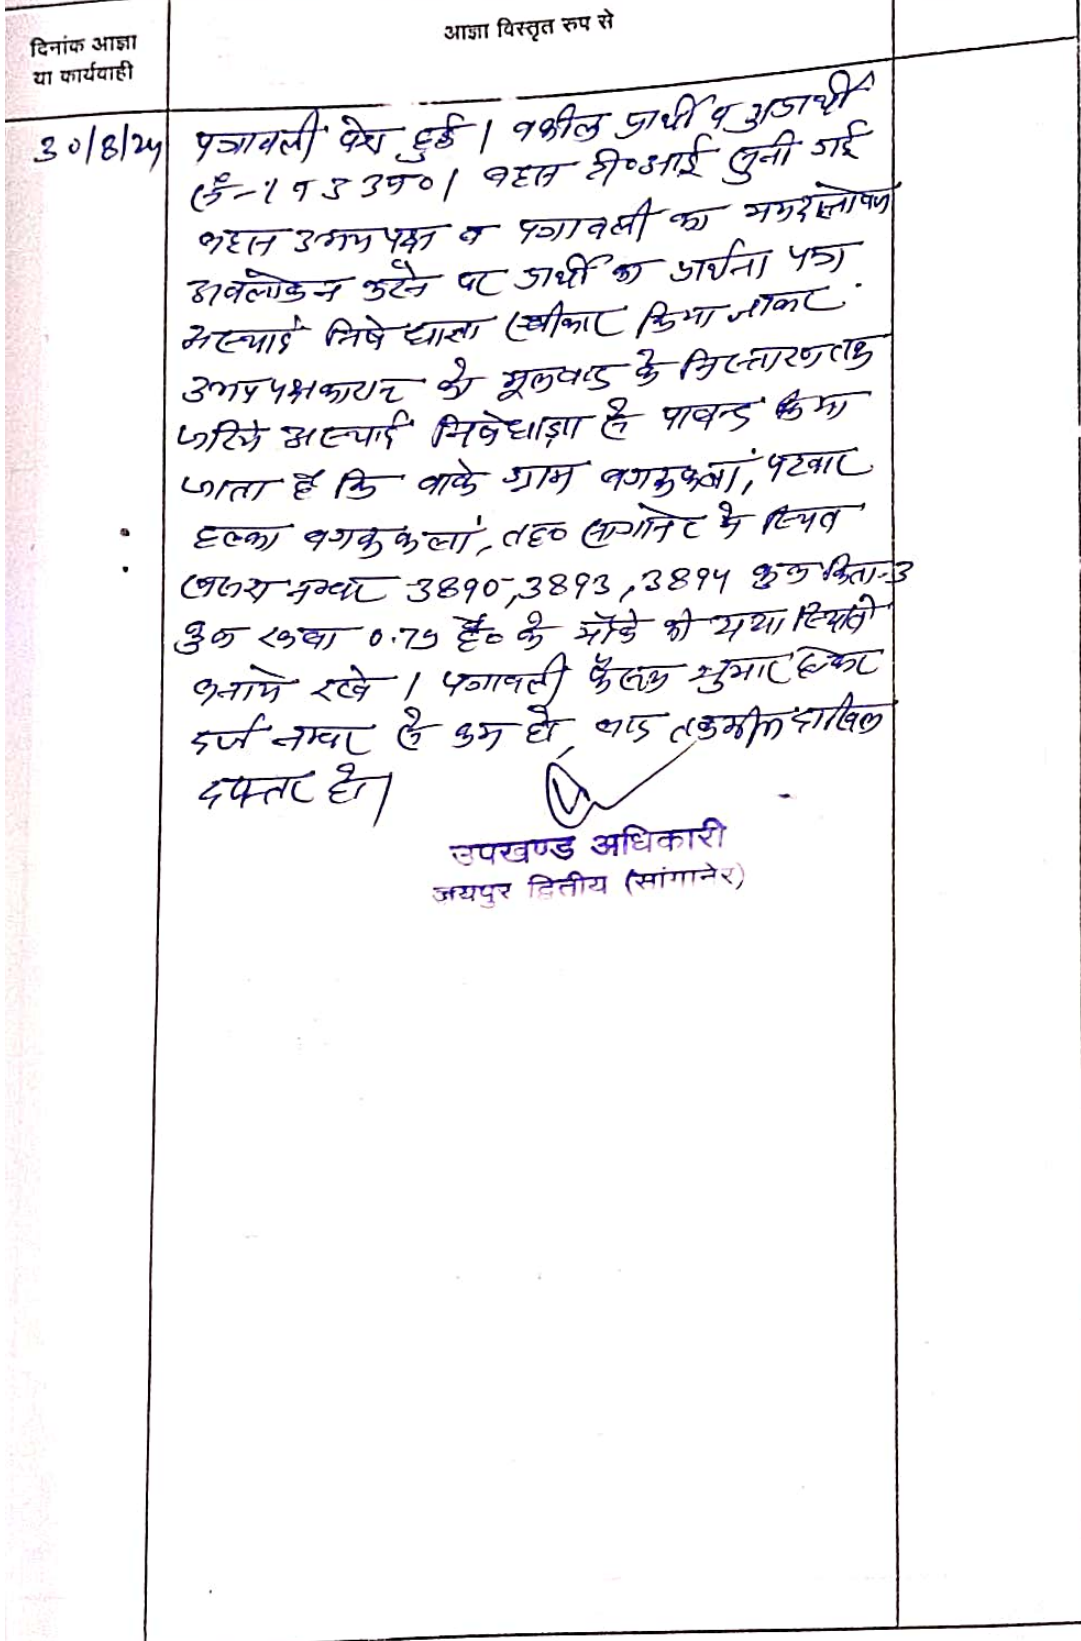 दिनांक आज्ञा
या कार्यवाही
आज्ञा विस्तृत रुप से
30/8/24
पत्रावली पेश हुई। वकील प्रार्थी व अप्रार्थी
सं-1 व 3 उप०। बहस टी०आई सुनी गई
बहस उभय पक्ष व पत्रावली का
अवलोकन करने पर प्रार्थी का प्रार्थना पत्र
अस्थाई निषेधाज्ञा स्वीकार किया जाकर
उभय पक्षकारान को मूलवाद के निस्तारण तक
जरिये अस्थाई निषेधाज्ञा से पाबन्द किया
जाता है कि वाके ग्राम बगरुकलां, पटवार
हल्का बगरुकलां, तह० सांगानेर में स्थित
खसरा नम्बर 3890, 3893, 3894 कुल किता-3
कुल रकबा 0.75 है० के मौके की यथा स्थिति
बनाये रखे। पत्रावली फैसल शुमार होकर
दर्ज नम्बर से कम हो, बाद तकमील दाखिल
दफ्तर हो।
उपखण्ड अधिकारी
जयपुर द्वितीय (सांगानेर)